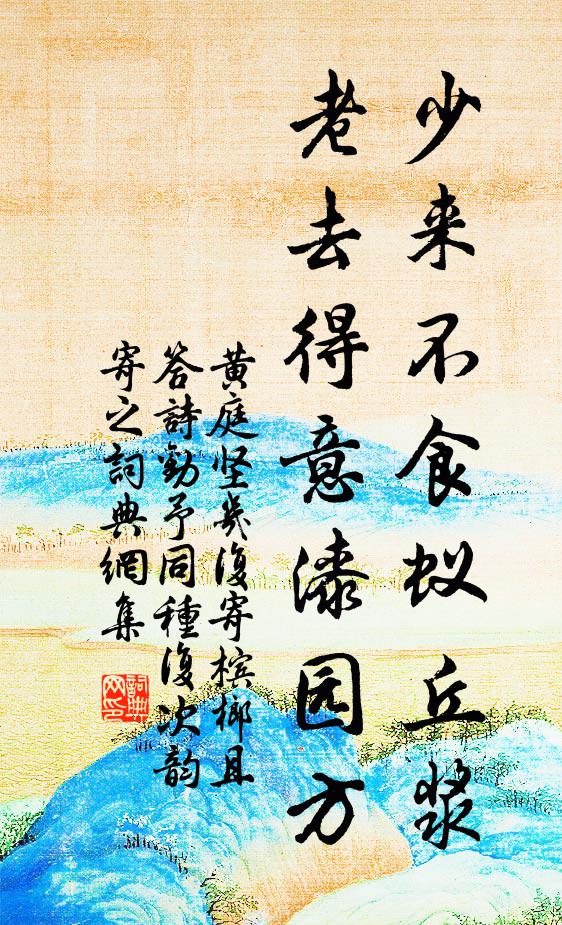 少来不食蚁丘浆
老去得意漆园方
黄庭坚几復寄槟榔且
答詩勸予同種復次韵
寄之詞典網集
詞典网印